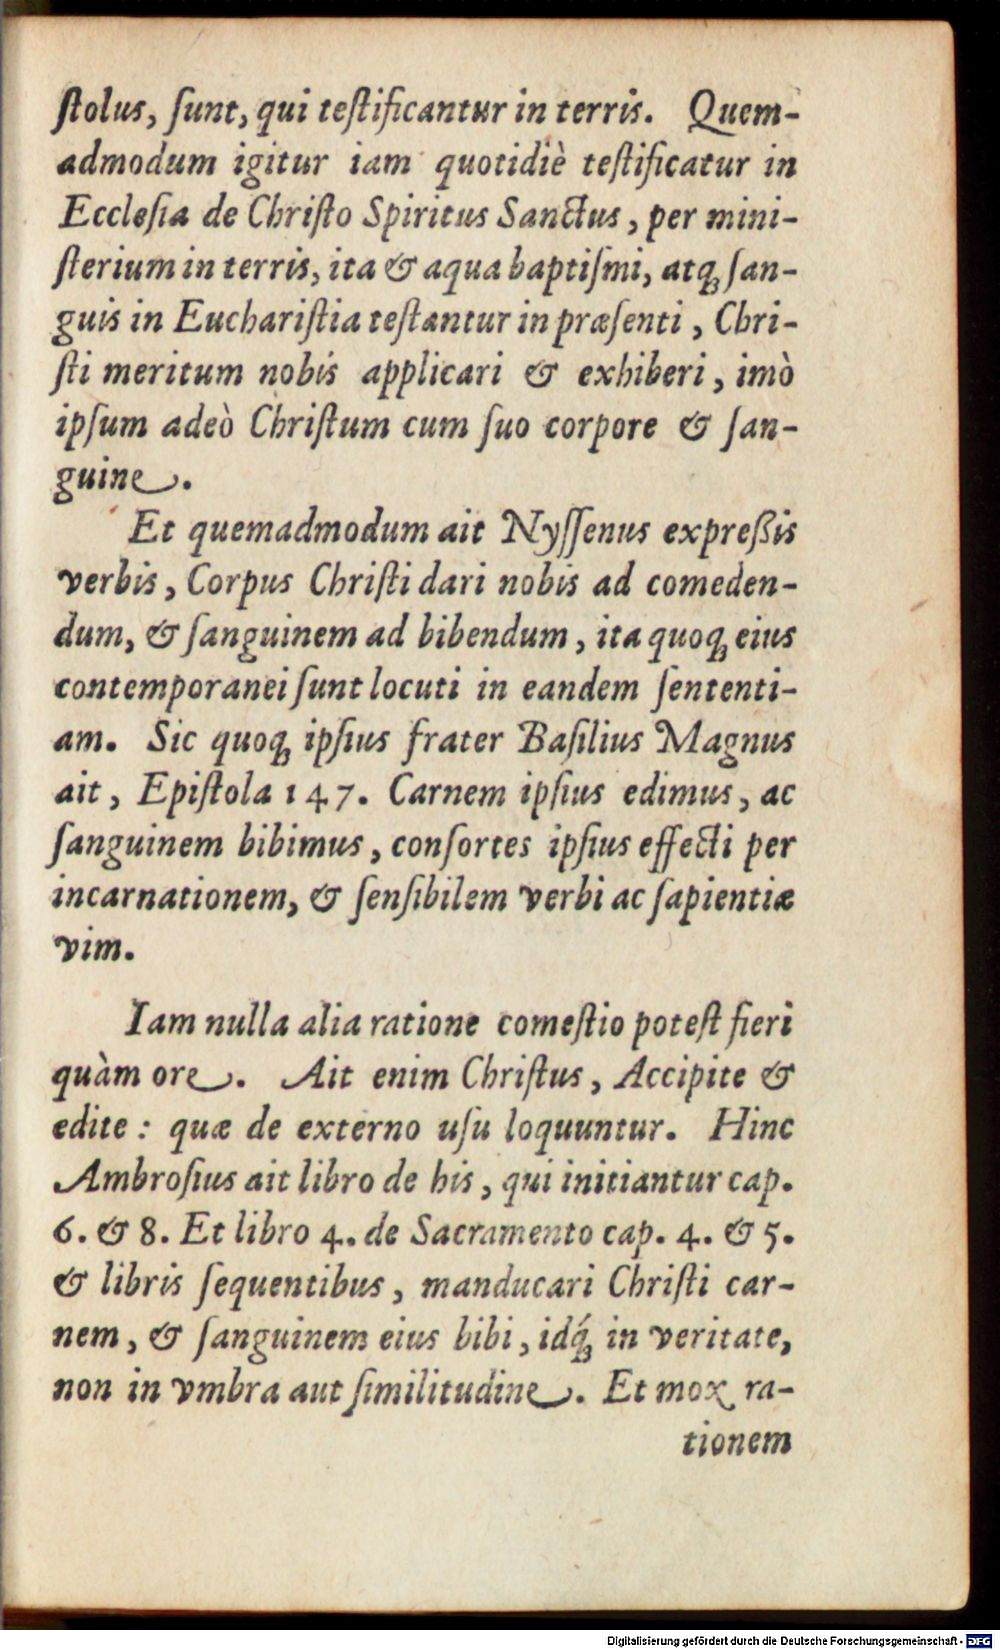 ſtolus, ſunt, qui teſtificantur in terris. Quem-
admodum igitur iam quotidiè teſtificatur in
Eccleſia de Chriſto Spiritus Sanctus, per mini-
ſterium in terris, ita & aqua baptiſmi, atq́ꝫ ſan-
guis in Euchariſtia teſtantur in præſenti, Chri-
ſti meritum nobis applicari & exhiberi, imò
ipſum adeò Chriſtum cum ſuo corpore & ſan-
guine.
Et quemadmodum ait Nyſſenus expreßis
verbis, Corpus Chriſti dari nobis ad comeden-
dum, & ſanguinem ad bibendum, ita quoqꝫ eius
contemporanei ſunt locuti in eandem ſententi-
am. Sic quoqꝫ ipſius frater Baſilius Magnus
ait, Epiſtola 147. Carnem ipſius edimus, ac
ſanguinem bibimus, conſortes ipſius effecti per
incarnationem, & ſenſibilem verbi ac ſapientiæ
vim.
Iam nulla alia ratione comeſtio poteſt fieri
quàm ore. Ait enim Chriſtus, Accipite &
edite: quæ de externo uſu loquuntur. Hinc
Ambroſius ait libro de his, qui initiantur cap.
6. & 8. Et libro 4. de Sacramento cap. 4. & 5.
& libris ſequentibus, manducari Chriſti car-
nem, & ſanguinem eius bibi, idq́ꝫ in veritate,
non in vmbra aut ſimilitudine. Et mox ra-
tionem
Digitalisierung gefördert durch die Deutsche Forschungsgemeinschaft - DFG